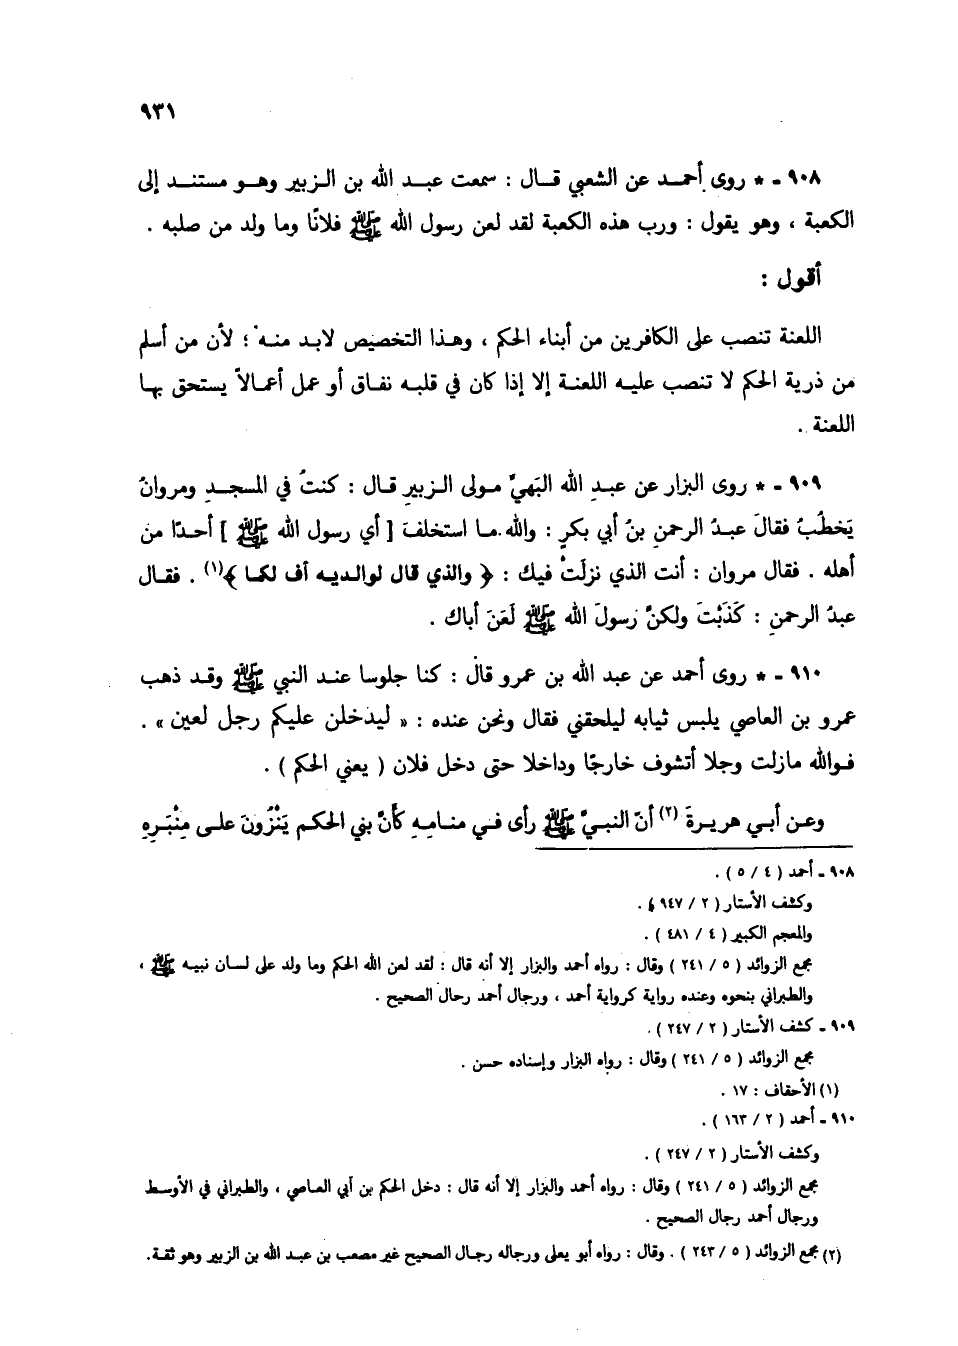 ٩٣١
٩٠٨ ـ * روى أحمد عن الشعبي قال : سمعت عبد الله بن الزبير وهو مستند إلى
الكعبة ، وهو يقول : ورب هذه الكعبة لقد لعن رسول الله ﷺ فلانًا وما ولد من صلبه .
أقول :
اللعنة تنصب على الكافرين من أبناء الحكم ، وهذا التخصيص لابد منه ؛ لأن من أسلم
من ذرية الحكم لا تنصب عليه اللعنة إلا إذا كان في قلبه نفاق أو عمل أعمالاً يستحق بها
اللعنة .
٩٠٩ ـ * روى البزار عن عبدِ الله البَهيِّ مولى الزبيرِ قال : كنتُ في المسجدِ ومروانُ
يَخطُبُ فقالَ عبدُ الرحمنِ بنُ أبي بكرٍ : والله ما استخلفَ [ أي رسول الله ﷺ ] أحدًا من
أهله . فقال مروان : أنت الذي نزلَتْ فيك : ﴿ والذي قال لوالديه أف لكما ﴾(١) . فقال
عبدُ الرحمنِ : كَذَبْتَ ولكنَّ رسولَ الله ﷺ لَعَنَ أباك .
٩١٠ ـ * روى أحمد عن عبد الله بن عمرو قال : كنا جلوسا عند النبي ﷺ وقد ذهب
عمرو بن العاصي يلبس ثيابه ليلحقني فقال ونحن عنده : « ليدخلن عليكم رجل لعين » .
فوالله مازلت وجلا أتشوف خارجًا وداخلا حتى دخل فلان ( يعني الحكم ) .
وعن أبي هريرةَ (٢) أنّ النبيَّ ﷺ رأى في منامِهِ كأنَّ بني الحكم يَنْزُونَ على مِنْبَرِهِ
٩٠٨ ـ أحمد ( ٤ / ٥ ) .
وكشف الأستار ( ٢ / ٩٤٧ ) .
والمعجم الكبير ( ٤ / ٤٨١ ) .
مجمع الزوائد ( ٥ / ٢٤١ ) وقال : رواه أحمد والبزار إلا أنه قال : لقد لعن الله الحكم وما ولد على لسان نبيه ﷺ ،
والطبراني بنحوه وعنده رواية كرواية أحمد ، ورجال أحمد رجال الصحيح .
٩٠٩ ـ كشف الأستار ( ٢ / ٢٤٧ ) .
مجمع الزوائد ( ٥ / ٢٤١ ) وقال : رواه البزار وإسناده حسن .
(١) الأحقاف : ١٧ .
٩١٠ ـ أحمد ( ٢ / ١٦٣ ) .
وكشف الأستار ( ٢ / ٢٤٧ ) .
مجمع الزوائد ( ٥ / ٢٤١ ) وقال : رواه أحمد والبزار إلا أنه قال : دخل الحكم بن أبي العاصي ، والطبراني في الأوسط
ورجال أحمد رجال الصحيح .
(٢) مجمع الزوائد ( ٥ / ٢٤٣ ) . وقال : رواه أبو يعلى ورجاله رجال الصحيح غير مصعب بن عبد الله بن الزبير وهو ثقة .